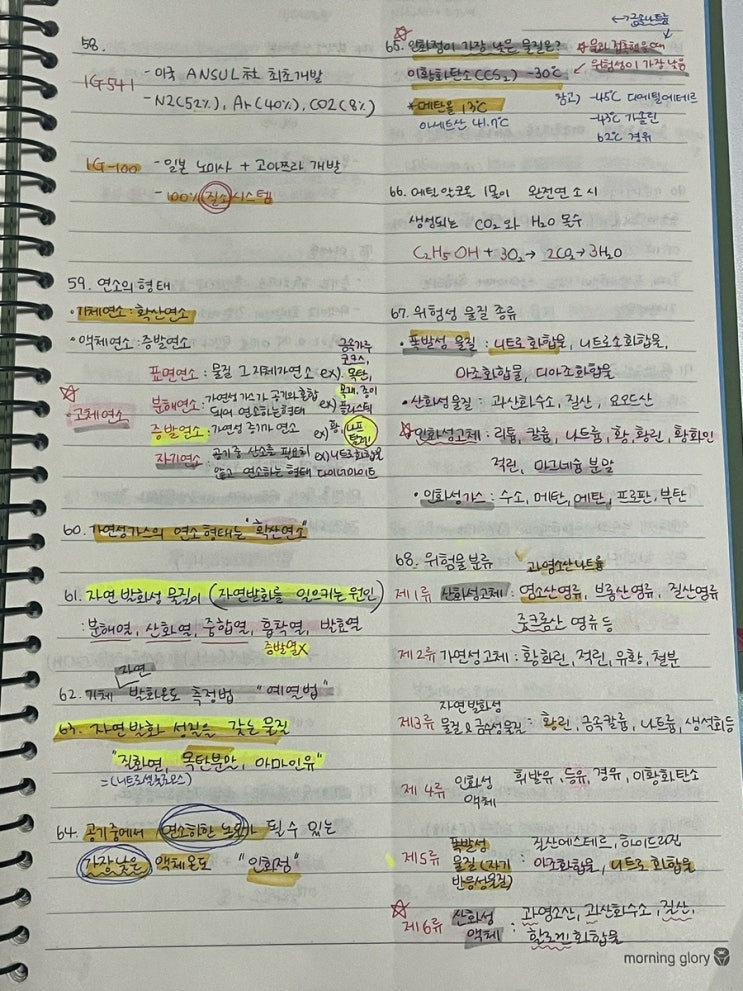 58.
IG541 - 미국 ANSUL社 최초개발
- N2(52%), Ar(40%), CO2(8%)
IG-100 - 일본 노미사 + 고아쯔라 개발
- 100% 질소 시스템
59. 연소의 형태
• 기체연소 : 확산연소
• 액체연소 : 증발연소
• 고체연소
표면연소 : 물질 그 자체가 연소 ex) 목탄, 코크스, 금속가루
분해연소 : 가연성가스가 공기와 혼합되어 연소하는형태 ex) 목재, 종이 플라스틱
증발연소 : 가연성 증기가 연소 ex) 황, 나프탈렌
자기연소 : 공기중 산소를 필요치 않고 연소하는 형태 ex) 니트로화합물 다이너마이트
60. 가연성가스의 연소 형태는 "확산연소"
61. 자연 발화성 물질이 (자연발화를 일으키는 원인)
: 분해열, 산화열, 중합열, 흡착열, 발효열
증발열X
자연
62. 기체 발화온도 측정법 "예열법"
63. 자연발화 성질을 갖는 물질
"질화면, 목탄분말, 아마인유"
=(니트로셀룰로오스)
64. 공기중에서 연소하한 농도가 될 수 있는
가장낮은 액체온도 "인화점"
↔금속나트륨
65. 인화점이 가장 낮은 물질은? ☆물과 접촉했을때
이황화탄소(CS₂) -30℃ ↙ 위험성이 가장 낮음
*메탄올 13℃ 참고) -45℃ 디에틸에테르
아세트산 41.7℃ -43℃ 가솔린
62℃ 경유
66. 에틸 알코올 1몰이 완전연소시
생성되는 CO₂와 H₂O 몰수
C₂H₅OH + 3O₂ → 2CO₂ → 3H₂O
67. 위험성 물질 종류
• 폭발성 물질 : 니트로 화합물, 니트로소화합물,
아조화합물, 디아조화합물
• 산화성물질 : 과산화수소, 질산, 요오드산
☆인화성고체 : 리튬, 칼륨, 나트륨, 황, 황린, 황화인
적린, 마그네슘 분말
• 인화성가스 : 수소, 메탄, 에탄, 프로판, 부탄
68. 위험물 분류 과염소산나트륨
제1류 산화성고체 : 염소산염류, 브롬산염류, 질산염류
중크롬산 염류 등
제2류 가연성고체 : 황화린, 적린, 유황, 철분
제3류 자연발화성 물질 & 금수성물질 : 황린, 금속칼륨, 나트륨, 생석회등
제4류 인화성 액체 휘발유, 등유, 경유, 이황화탄소
제5류 폭발성 물질 (자기반응성물질) : 질산에스테르, 하이드라진
아조화합물, 니트로화합물
☆제6류 산화성 액체 : 과염소산, 과산화수소, 질산,
할로겐화합물
morning glory